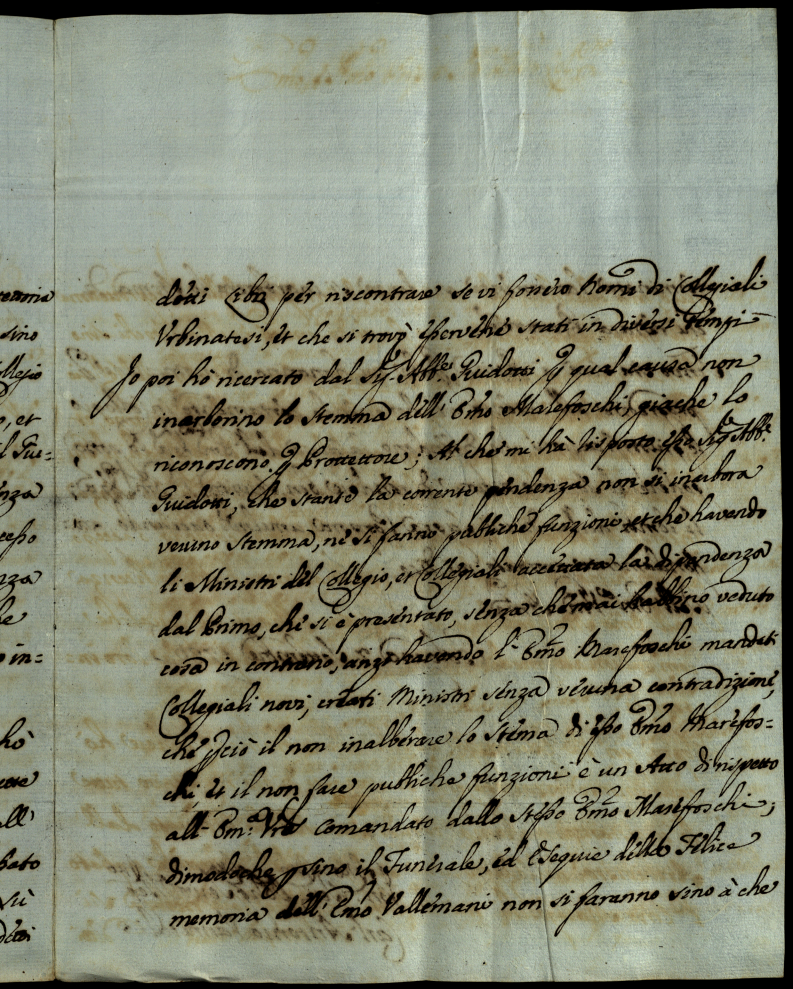 detti Libri per riscontrare se vi fossero Nomi di Collegiali
Urbinatesi, et che si trovò esservene stati in diversi Tempi
Io poi hò ricercato dal Sig.r Abb.e Guidotti p qual causa non
inarborino lo Stemma dell' Emo Marefoschi, giache lo
riconoscono p Protettore; Al che mi hà risposto esso Sig.r Abb.e
Guidotti, che stante la corrente pendenza non si inarbora
veruno Stemma, ne si fanno publiche funzioni, et che havendo
li Ministri del Collegio, et Collegiali accettata la dipendenza
dal Primo, che si è presentato, senza che mai habbino veduto
cosa in contrario, anzi havendo l' Emo Marefoschi mandati
Collegiali novi, creati Ministri senza veruna contradizione,
che pciò il non inalberare lo Stema di esso Emo Marefos=
chi, et il non fare publiche funzioni è un Atto di rispetto
all' Em: Vra comandato dallo stesso Emo Marefoschi;
dimodoche psino il Funerale, ed Esequie della Felice
memoria dell' Emo Vallemani non si faranno sino à che
sino
ollegio
o, et
il Gui=
enza
cesso
nza
he
o in=
hò
all'
bato
sù